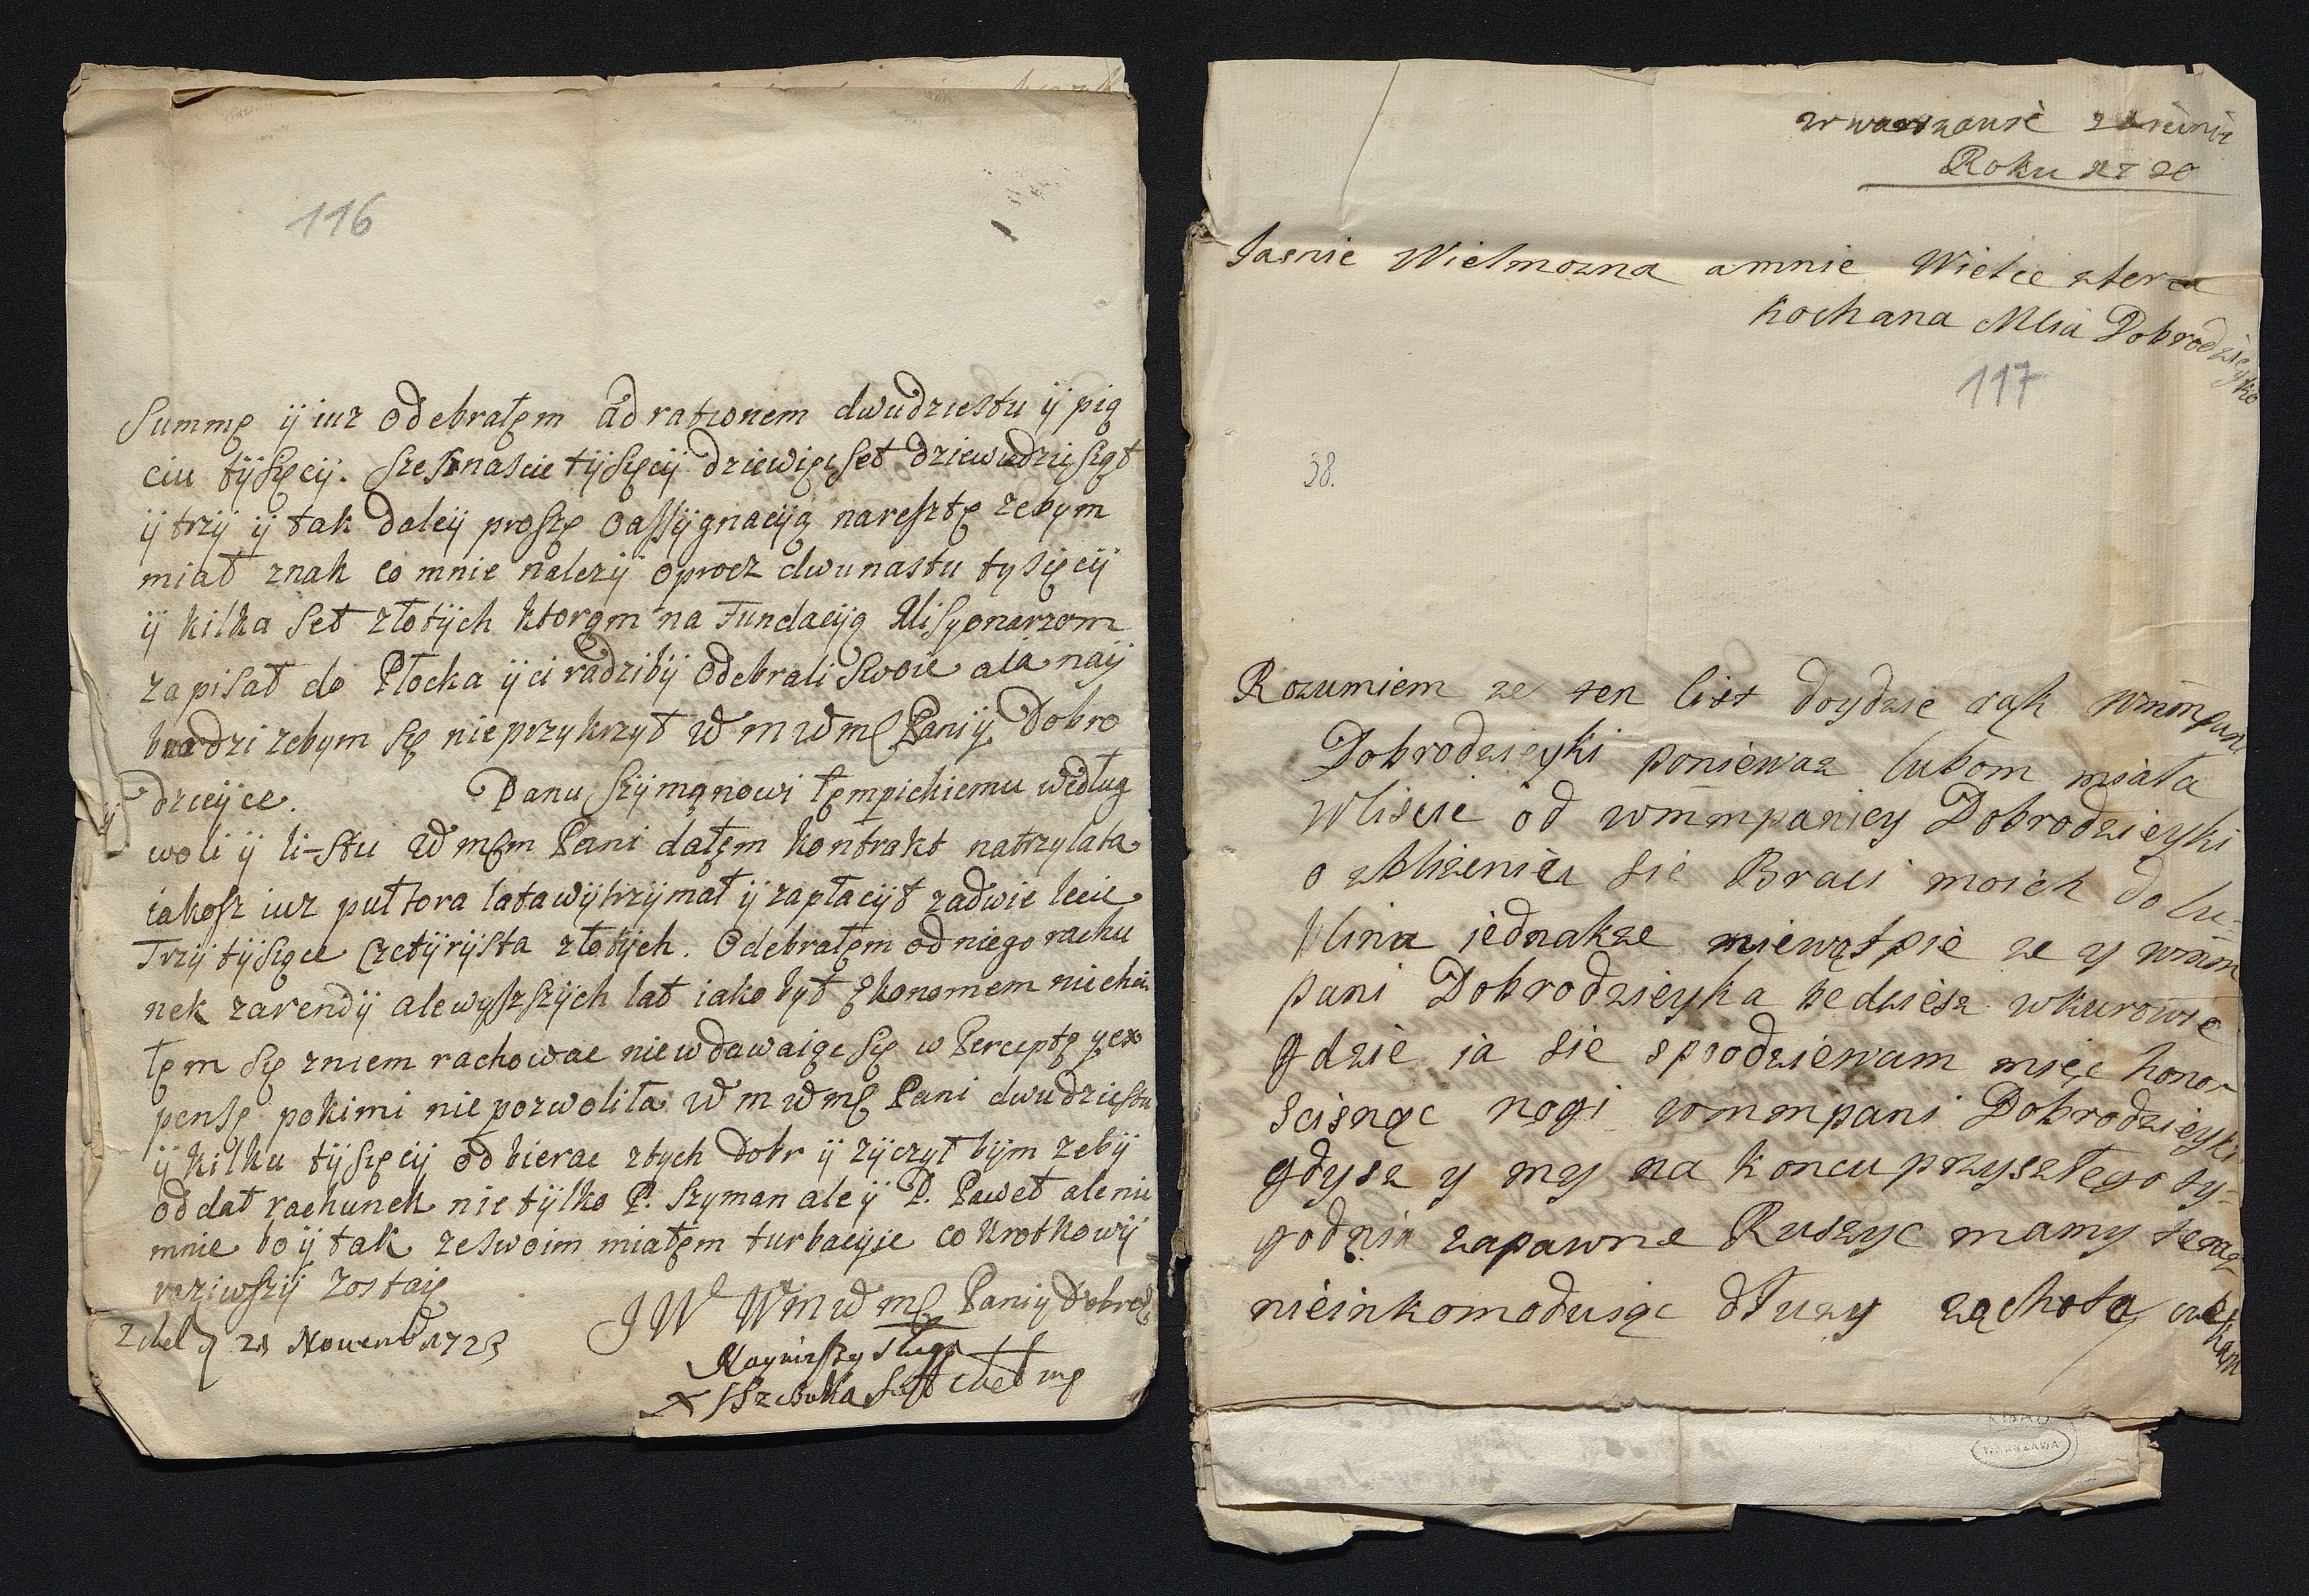 116
Summę ij iuz odebrałem ad rationem dwudziestu ij pią
ciu tijsięcij. szesnascie tijsięcij dziewięcset dziewiedzisiąt
ij trzij ij tak daleij proszę o assijgnaciją naresztę zebym
miał znak co mnie nalezij oprocz dwunastu tysięcij
ij kilka set złotijch ktorąm na Fundaciją Misyonarzom
zapisał do Płocka ij ci radzibij odebrali swoie a ia naij
bardzi zebym się nieprzykrzył Panij Dobro
dzieijce. Panu Szijmąnowi Łempickiemu według
woli ij li-stu Pani dałem kontrakt natrzylata
iakosz iuz pułtora lata wijtrzijmał ij zapłacijł zadwie lecie
Trzij tijsiące czetijrijsta złotijch. Odebrałem od niego rachu
nek zarendij ale wyszszijch lat iako był Ekonomem niechcia
łem się zniem rachowac niewdawaiąc się w Perceptę y ex
pensę pokimi niepozwoliła Pani dwudziestu
ij kilku tijsięcij odbierac ztych dobr ij zijczył bijm zebij
oddał rachunek nie tijlko P. Szyman ale ij P. Paweł ale nie
mnie bo ij tak ze swoim miałem turbacyje co krotko wij
raziwszij zostaię
Panij Dobrodz
Nayniszszy sługa
117
Roku
Jasnie Wielmozna amnie Wielce
kochana Mcia Dobrodzieyko
38.
Rozumiem ze ten list doydzie rąk wmmpani
Dobrodzieyki poniewaz lubom miała
wliscie od wmmpaniey Dobrodzieyki
o zblizeniu sie Braci moich do lu=
blina iednakze niewątpie ze y wmm
pani Dobrodzieyka bedziesz wkurowie
gdzie ia sie spodziewam miec honor
scisnąc nogi wmmpani Dobrodzieyki
gdysz y my na koncu przyszłego ty=
godnia zapawne Ruszyc mamy teraz
nieinkomoduiąc dłuzy
WARSZAWA